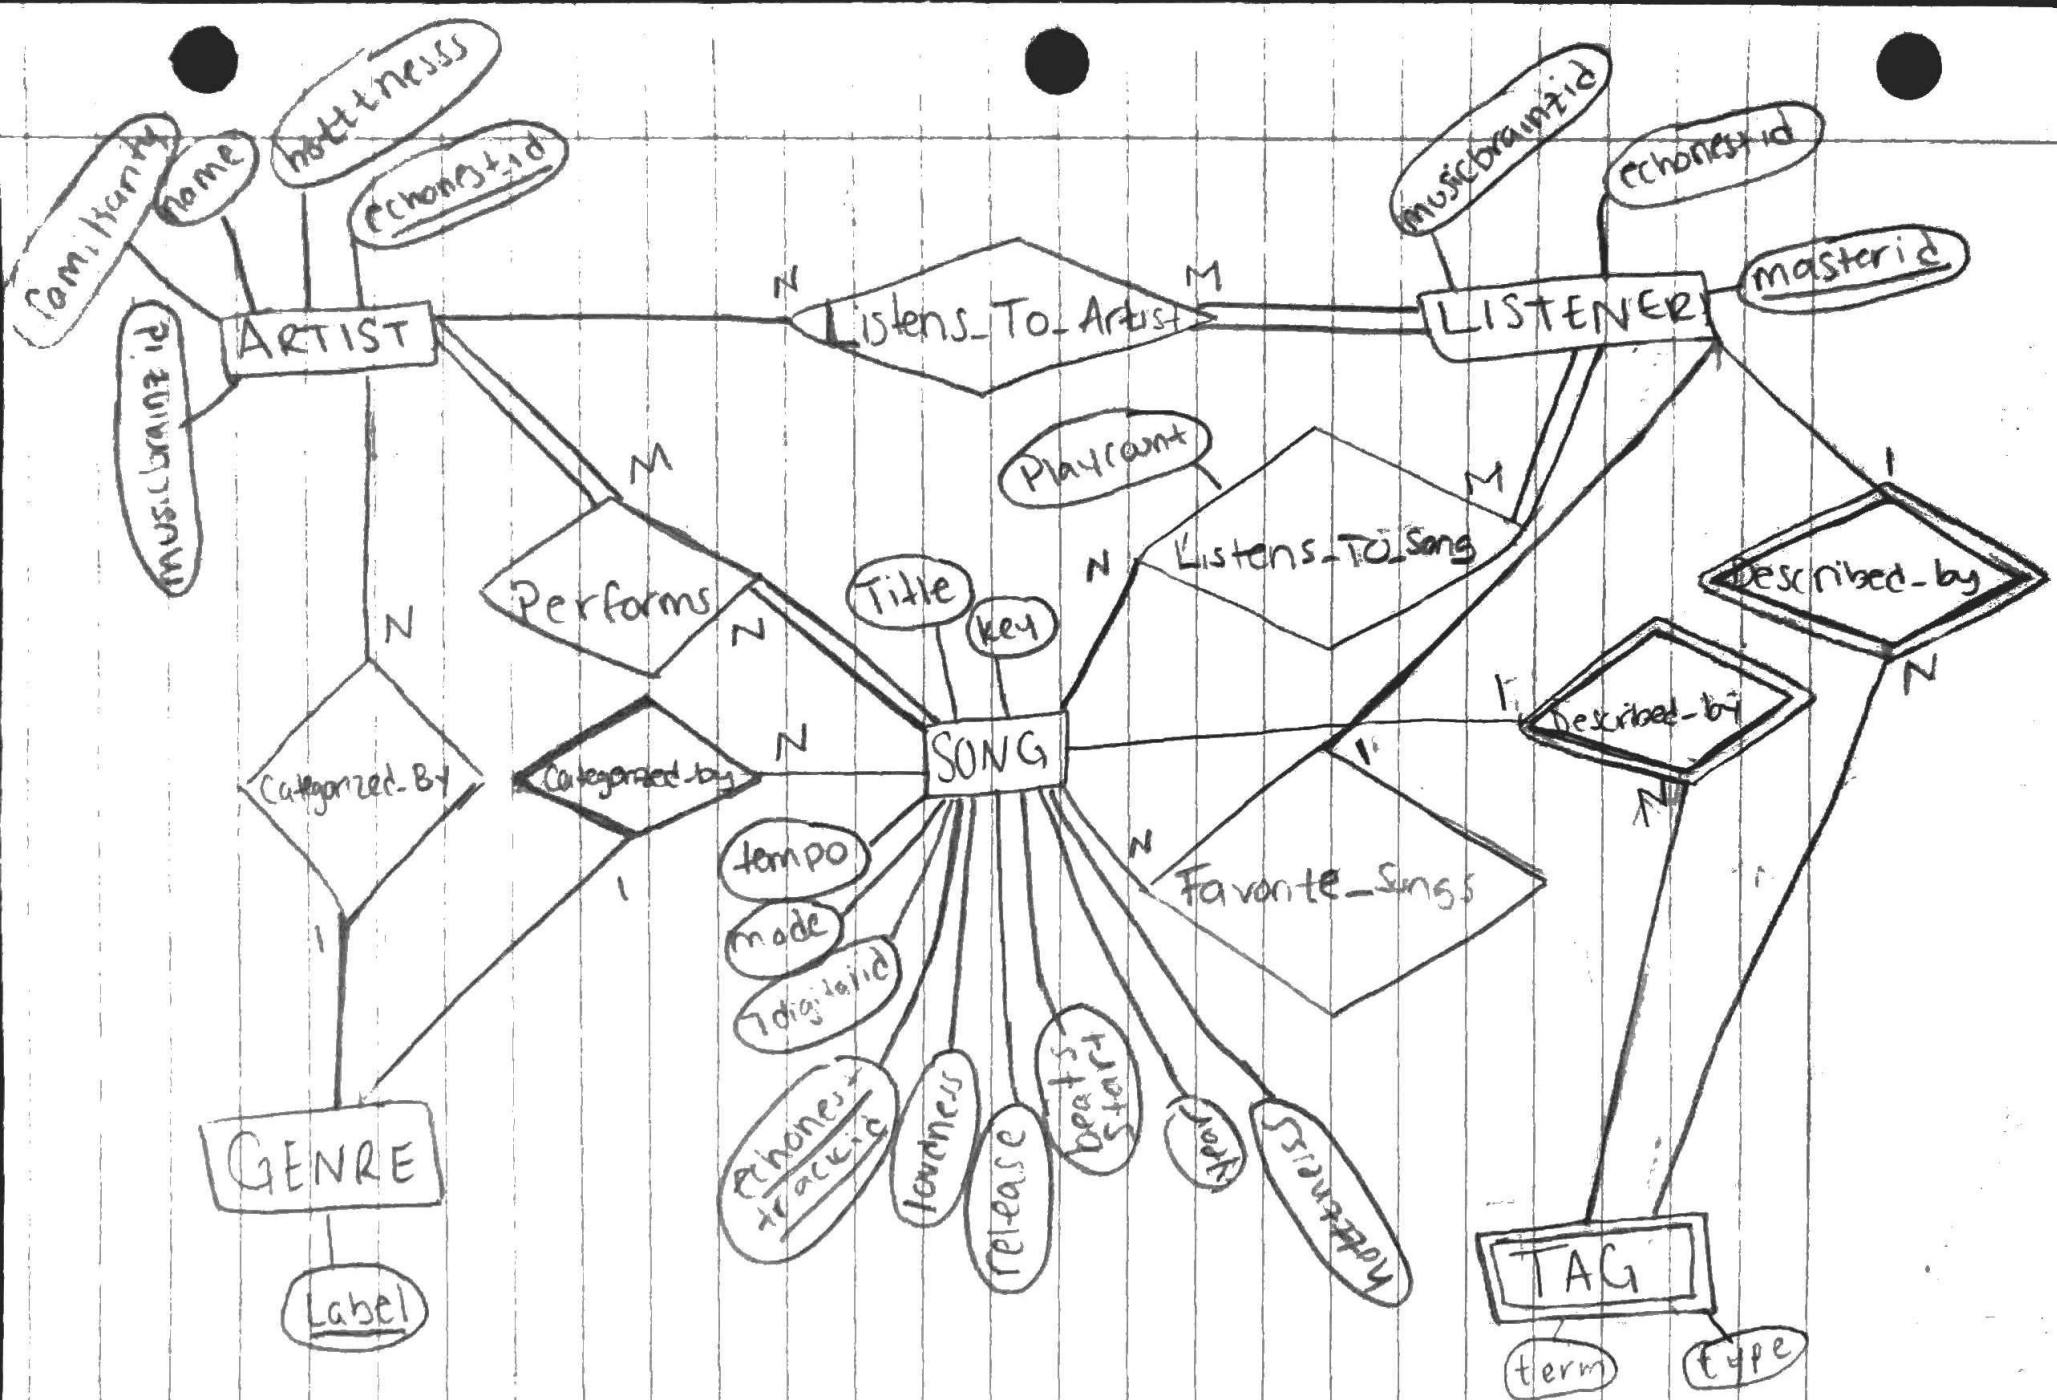 hotttnesss
familiarity
name
echonest_id
musicbrainz id
ARTIST
N
Listens_To_Artist
M
musicbrainz id
echonest id
masterid
LISTENER
M
Performs
N
Playcount
M
N
Listens_To_Song
1
Described_by
N
Title
key
N
Categorized_By
1
Categorized_by
N
1
SONG
1
Described_by
N
1
N
Favorite_Songs
tempo
mode
7digitalid
echonest
track id
loudness
release
beats
start
year
hotttnesss
GENRE
Label
TAG
term
type